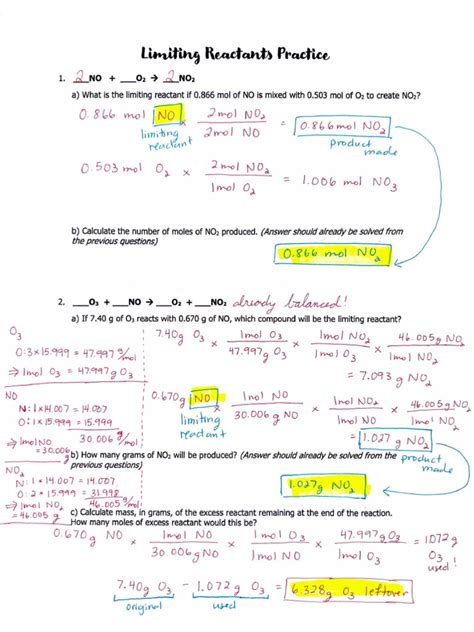 Limiting Reactants Practice
1. 2 NO + ___O₂ → 2 NO₂
a) What is the limiting reactant if 0.866 mol of NO is mixed with 0.503 mol of O₂ to create NO₂?
0.866 mol NO × 2mol NO₂ / 2mol NO = 0.866 mol NO₂
limiting reactant
product made
0.503 mol O₂ × 2mol NO₂ / 1mol O₂ = 1.006 mol NO₃
b) Calculate the number of moles of NO₂ produced. (Answer should already be solved from
the previous questions)
0.866 mol NO₂
2. ___O₃ + ___NO → ___O₂ + ___NO₂ already balanced!
a) If 7.40 g of O₃ reacts with 0.670 g of NO, which compound will be the limiting reactant?
O₃
O: 3×15.999 = 47.997 g/mol
⇒ 1mol O₃ = 47.997g O₃
7.40g O₃ × 1mol O₃ / 47.997g O₃ × 1mol NO₂ / 1mol O₃ × 46.005g NO₂ / 1mol NO₂
= 7.093 g NO₂
NO
N: 1×14.007 = 14.007
O: 1×15.999 = 15.999
30.006 g/mol
⇒ 1mol NO = 30.006g
0.670g NO × 1mol NO / 30.006 g NO × 1mol NO₂ / 1mol NO × 46.005g NO₂ / 1mol NO₂
limiting reactant
= 1.027g NO₂
product made
b) How many grams of NO₂ will be produced? (Answer should already be solved from the
previous questions)
1.027g NO₂
NO₂
N: 1×14.007 = 14.007
O: 2×15.999 = 31.998
46.005 g/mol
⇒ 1mol NO₂ = 46.005g
c) Calculate mass, in grams, of the excess reactant remaining at the end of the reaction.
How many moles of excess reactant would this be?
0.670g NO × 1mol NO / 30.006g NO × 1mol O₃ / 1mol NO × 47.997g O₃ / 1mol O₃ = 1.072 g O₃ used!
7.40g O₃ - 1.072g O₃ = 6.328g O₃ leftover
original used